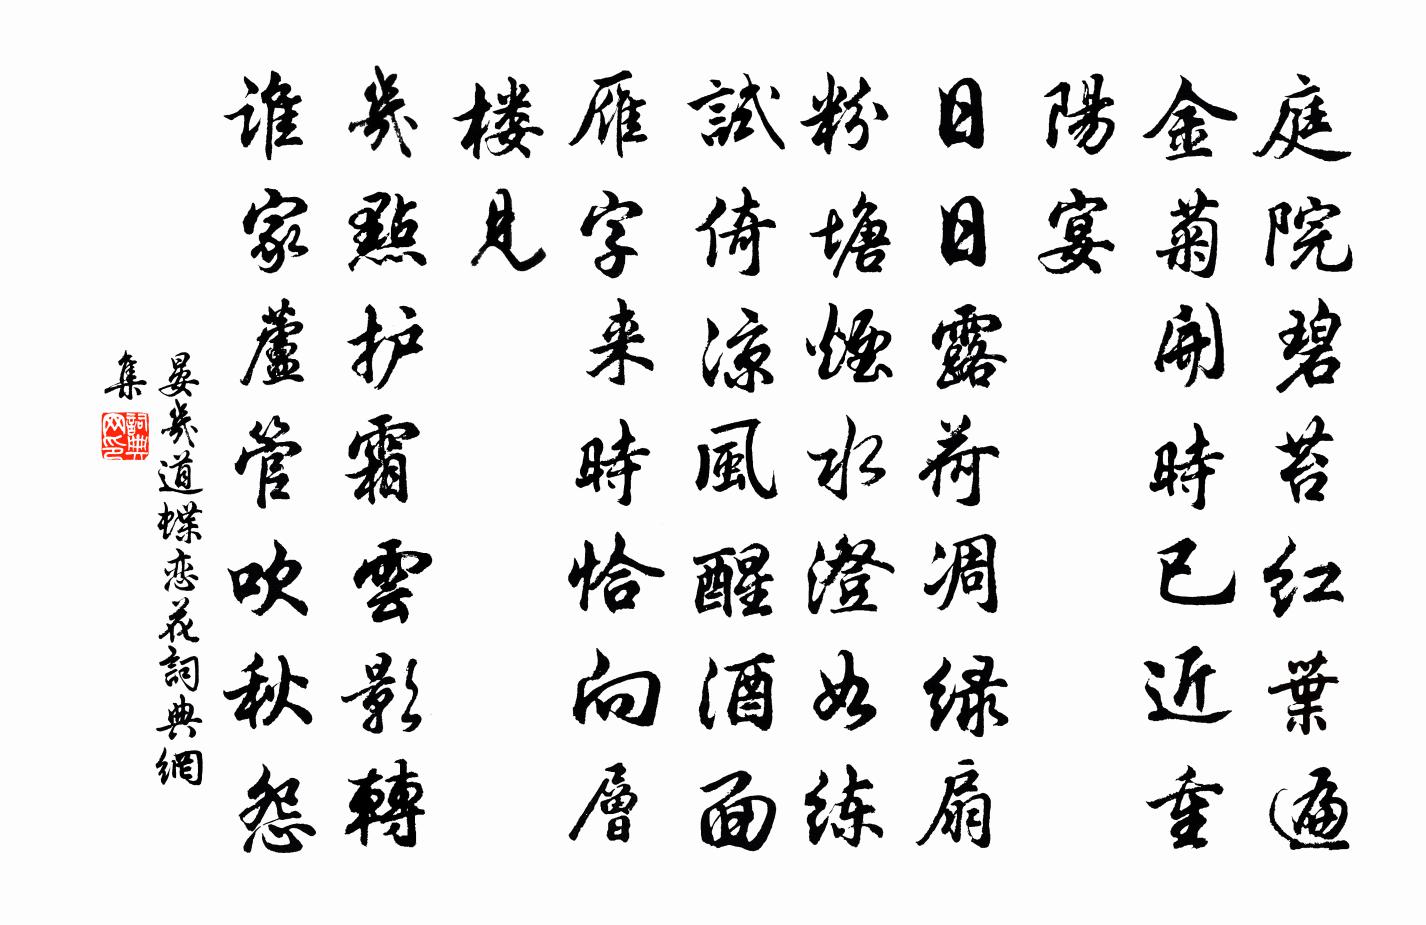 庭院碧苔红葉遍
金菊開時已近重
陽宴
日日露荷凋绿扇
粉塘煙水澄如练
試倚涼風醒酒面
雁字来時恰向層
楼見
幾點护霜雲影轉
谁家蘆管吹秋怨
晏幾道蝶恋花詞典網
集
詞典
网印